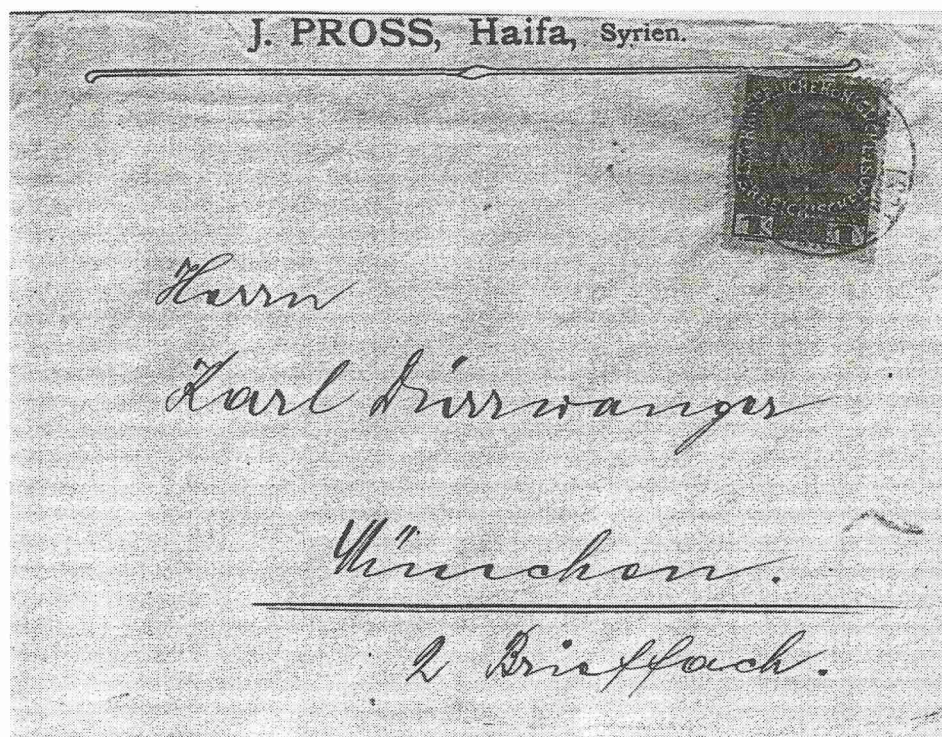 J. PROSS, Haifa, Syrien.
1 K 1 K
Herrn
Karl Dürrwanger
München.
2 Brieffach.